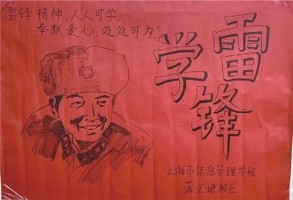 雷锋精神,人人可学
奉献爱心,处处可为。
学雷锋
上海市信息管理学校
蒲汇塘校区